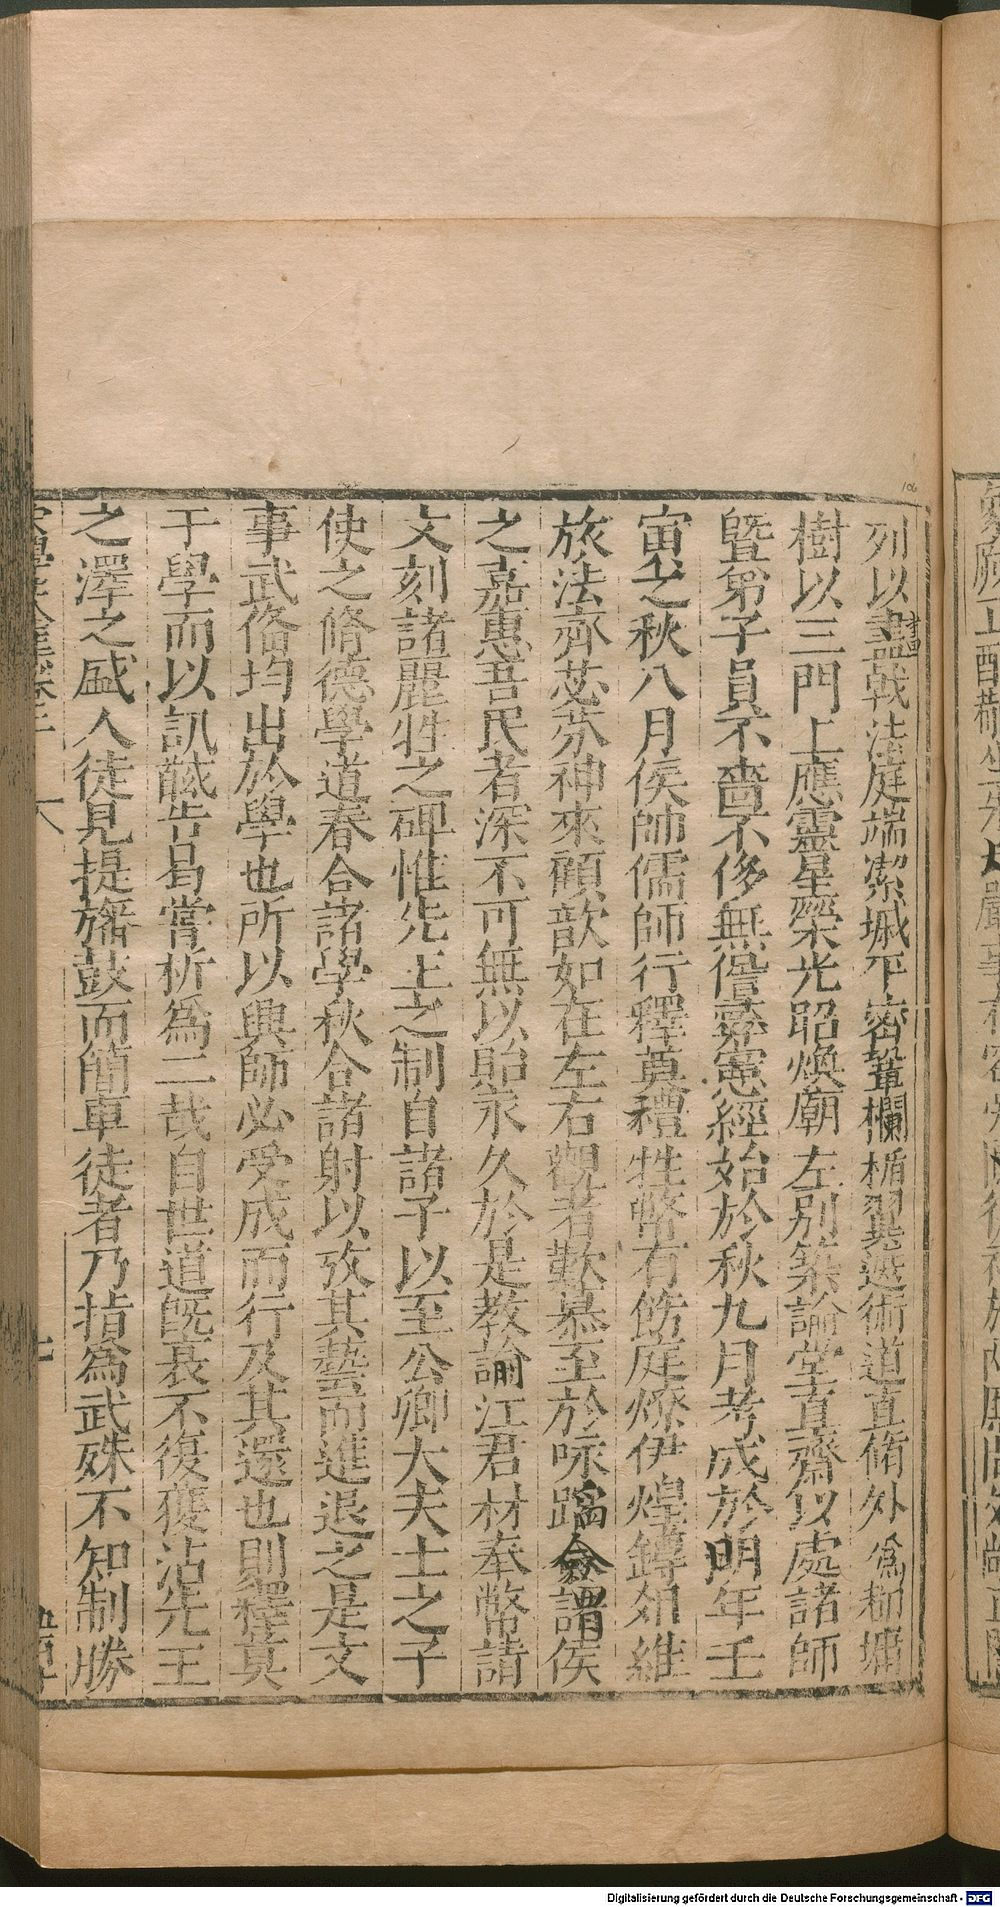 列以畫戟法庭端潔墄平密鞏欄楯翼遮術道直脩外爲柳墉
樹以三門上應靈星榮光昭煥廟左別築論堂直齋以處諸師
曁弟子員不嗇不侈無僭彞憲經始於秋九月考成於明年壬
寅之秋八月侯師儒師行釋奠禮牲幣有飭庭燎伊煌鐏俎維
旅法齊苾芬神來顧歆如在左右觀者歎慕至於咏蹈僉謂侯
之嘉惠吾民者深不可無以貽永久於是教諭江君材奉幣請
文刻諸麗牲之碑惟先王之制自諸子以至公卿大夫士之子
使之脩德學道春合諸學秋合諸射以攷其藝而進退之是文
事武俻均出於學也所以興師必受成而行及其還也則釋奠
于學而以訊馘告曷嘗析爲二哉自世道旣衰不復獲沾先王
之澤之盛人徒見提旛鼓而簡車徒者乃指爲武殊不知制勝
106
Digitalisierung gefördert durch die Deutsche Forschungsgemeinschaft - DFG